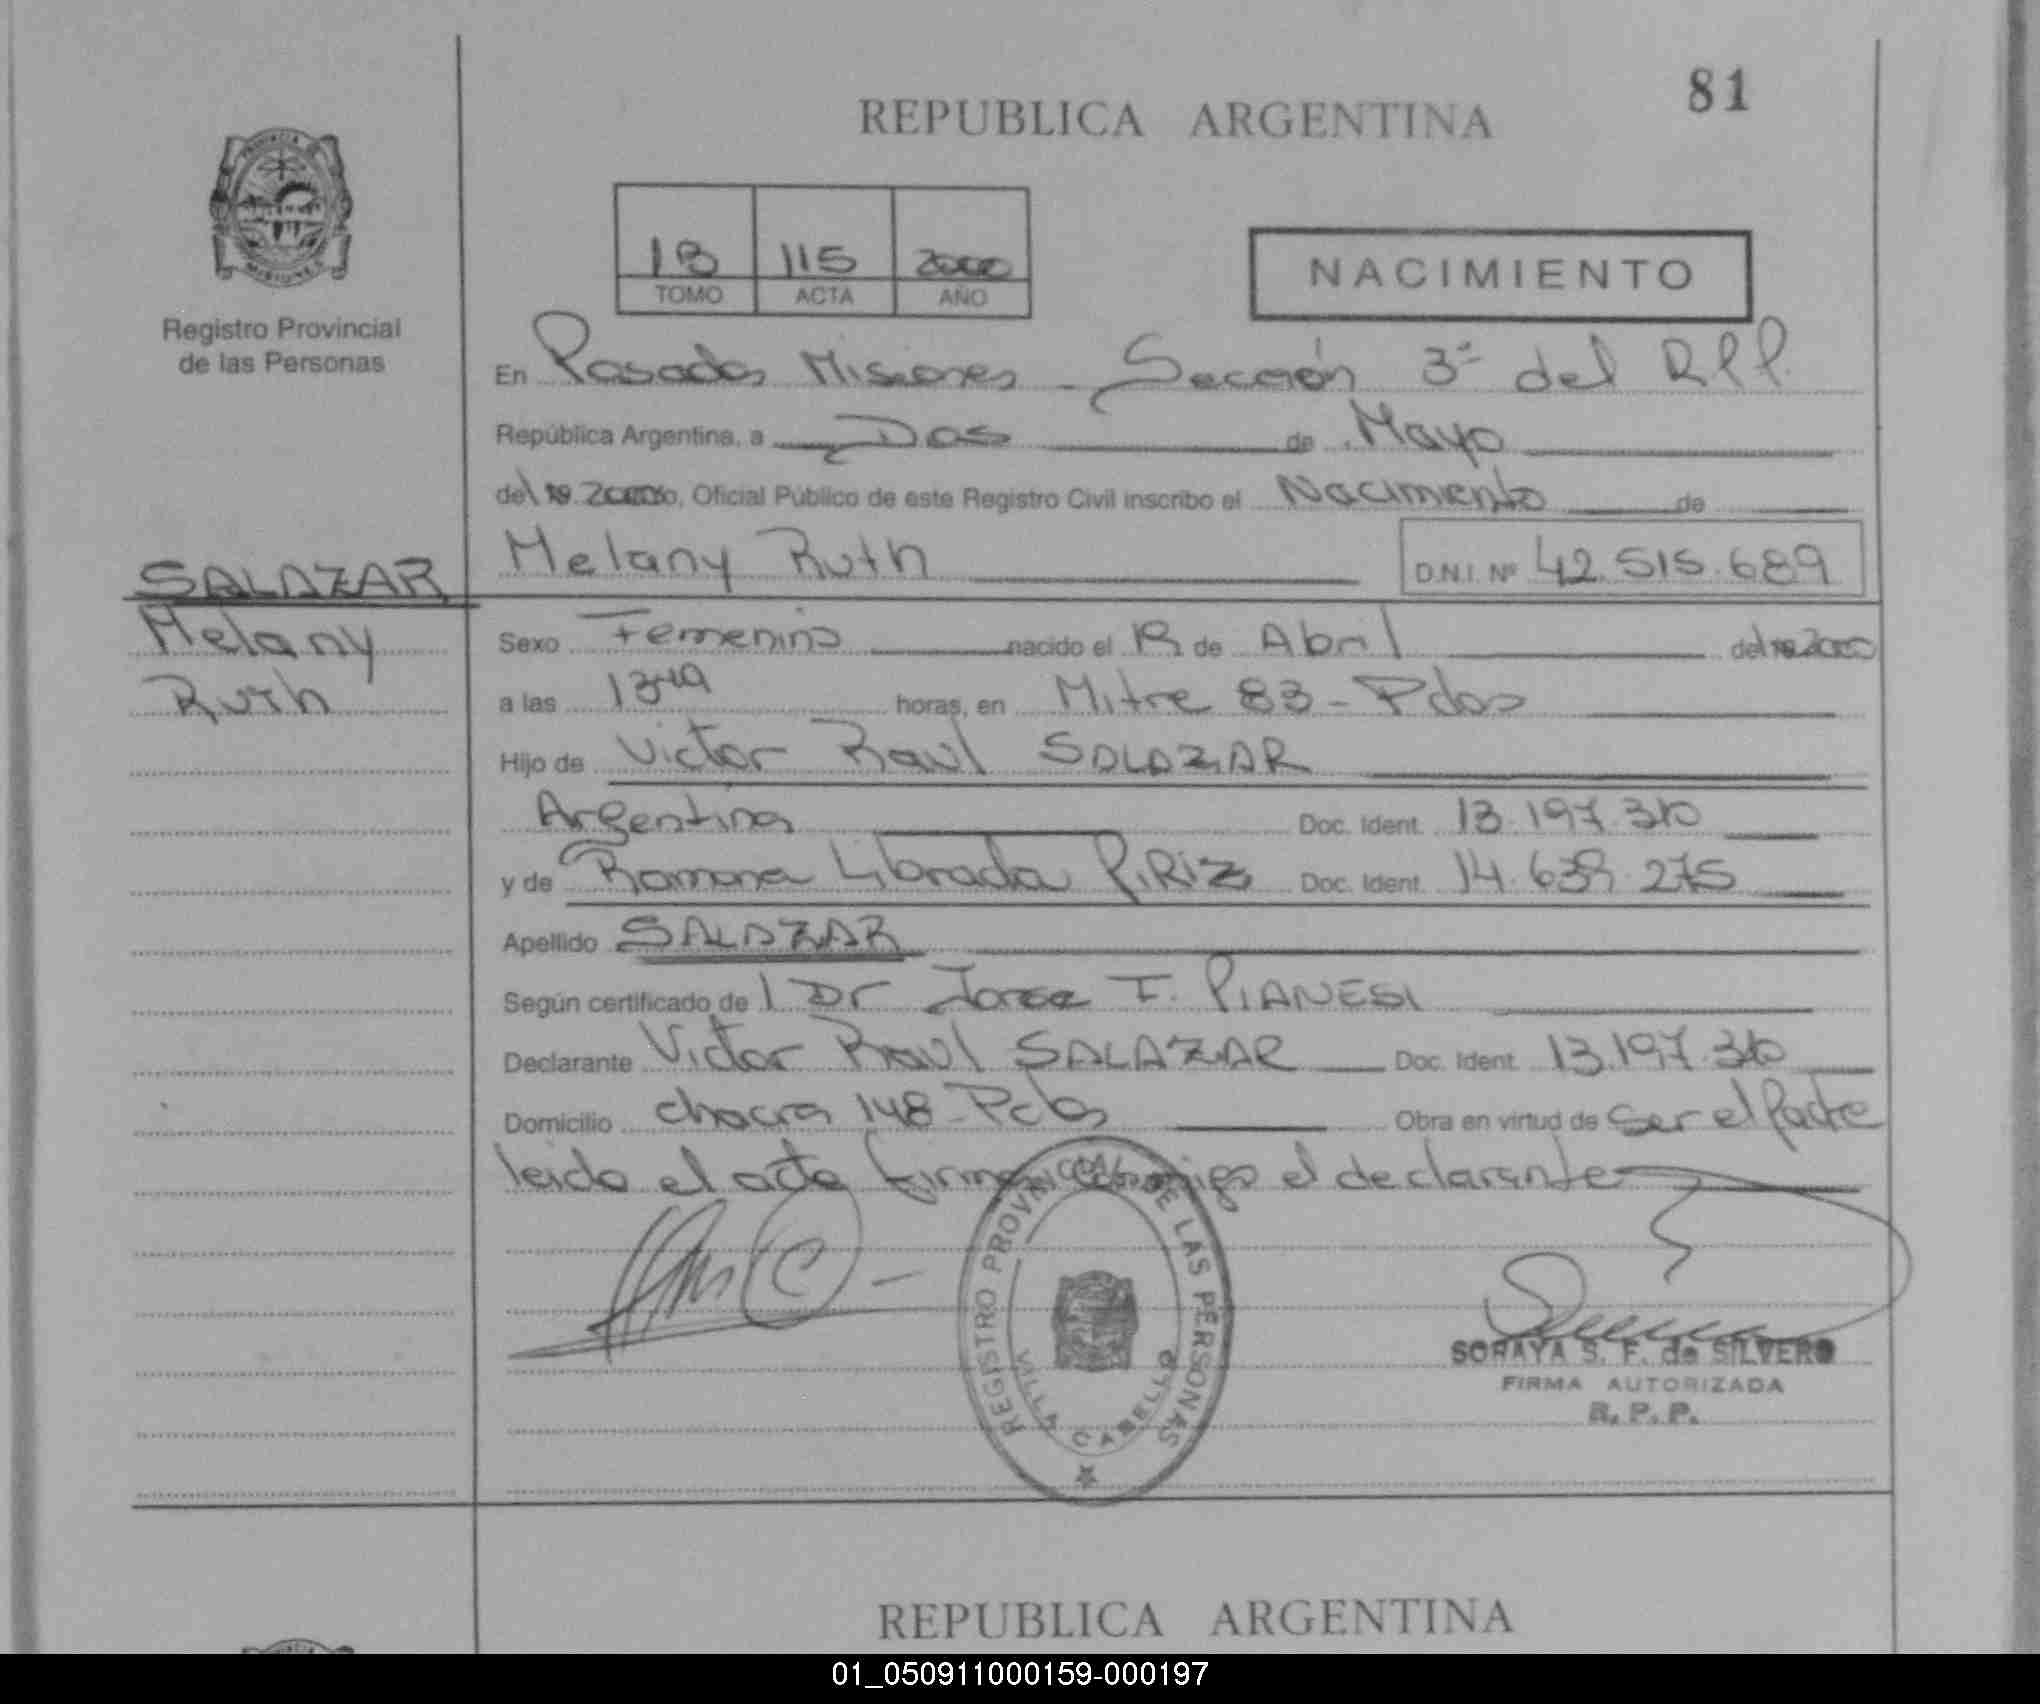 81
REPUBLICA ARGENTINA
PROVINCIA DE
MISIONES
Registro Provincial
de las Personas
115 2000
TOMO ACTA AÑO
NACIMIENTO
En Posadas Misiones - Sección 3ª del R.P.P.
República Argentina, a Dos de Mayo
del 2000, Oficial Público de este Registro Civil inscribo el Nacimiento de
SALAZAR
Melany
Ruth
Melany Ruth D.N.I. Nº 42.515.689
Sexo Femenino nacido el de Abril del 2000
a las 1349 horas, en Mitre 83 - Pdas
Hijo de Victor Raul SALAZAR
Argentina Doc. Ident. 13.197.310
y de Ramona Librada PIRIZ Doc. Ident. 14.639.275
Apellido SALAZAR
Según certificado de l Dr Jorge T. PIANESI
Declarante Victor Raul SALAZAR Doc. Ident. 13.197.310
Domicilio chacra 148 - Pdas Obra en virtud de ser el padre
leido el acta firma conmigo el declarante
REGISTRO PROVINCIAL DE LAS PERSONAS
VILLA CABELLO
SORAYA S. F. de SILVERO
FIRMA AUTORIZADA
R. P. P.
REPUBLICA ARGENTINA
01_050911000159-000197